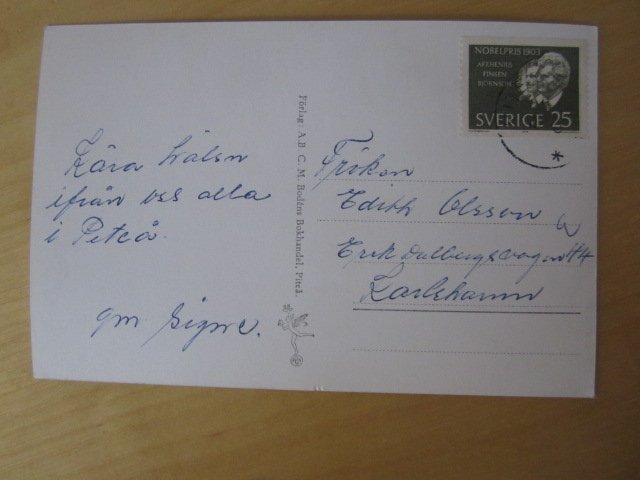 NOBELPRIS 1903
ARRHENIUS
FINSEN
BJÖRNSON
SVERIGE 25
Förlag: A.B. C. M. Bodéns Bokhandel, Piteå.
Kära hälsn
ifrån oss alla
i Piteå.
gm Signe.
Fröken
Edith Olsson
Erik Dalbergsvägen 44
Karlshamn